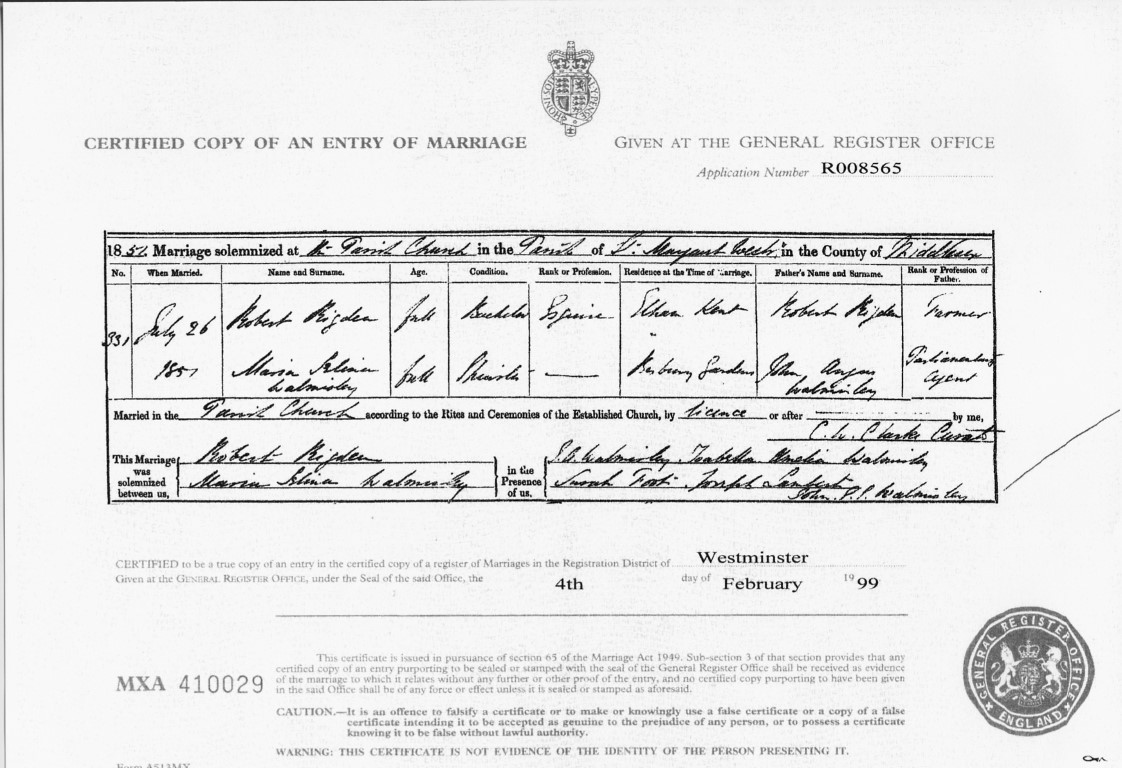 CERTIFIED COPY OF AN ENTRY OF MARRIAGE
GIVEN AT THE GENERAL REGISTER OFFICE
Application Number R008565
1851 Marriage solemnized at the Parish Church in the Parish of St. Margaret Westr. in the County of Middlesex
No. When Married. Name and Surname. Age. Condition. Rank or Profession. Residence at the Time of Marriage. Father's Name and Surname. Rank or Profession of Father.
331 July 26 Robert Rigden full Bachelor Esquire Elham Kent Robert Rigden Farmer
1851 Maria Selina Walmisley full Spinster — Gardens John Angus Walmisley Parliamentary Agent
Married in the Parish Church according to the Rites and Ceremonies of the Established Church, by licence or after by me,
C. W. Clarke Curate
This Marriage was solemnized between us, Robert Rigden
Maria Selina Walmisley
in the Presence of us. J. A. Walmisley Isabella Amelia Walmisley
Sarah Foot Joseph Lambert
John Walmisley
CERTIFIED to be a true copy of an entry in the certified copy of a register of Marriages in the Registration District of Westminster
Given at the GENERAL REGISTER OFFICE, under the Seal of the said Office, the 4th day of February 1999
This certificate is issued in pursuance of section 65 of the Marriage Act 1949. Sub-section 3 of that section provides that any
certified copy of an entry purporting to be sealed or stamped with the seal of the General Register Office shall be received as evidence
of the marriage to which it relates without any further or other proof of the entry, and no certified copy purporting to have been given
in the said Office shall be of any force or effect unless it is sealed or stamped as aforesaid.
MXA 410029
CAUTION.—It is an offence to falsify a certificate or to make or knowingly use a false certificate or a copy of a false
certificate intending it to be accepted as genuine to the prejudice of any person, or to possess a certificate
knowing it to be false without lawful authority.
WARNING: THIS CERTIFICATE IS NOT EVIDENCE OF THE IDENTITY OF THE PERSON PRESENTING IT.
GENERAL REGISTER OFFICE
ENGLAND
Form A513MX